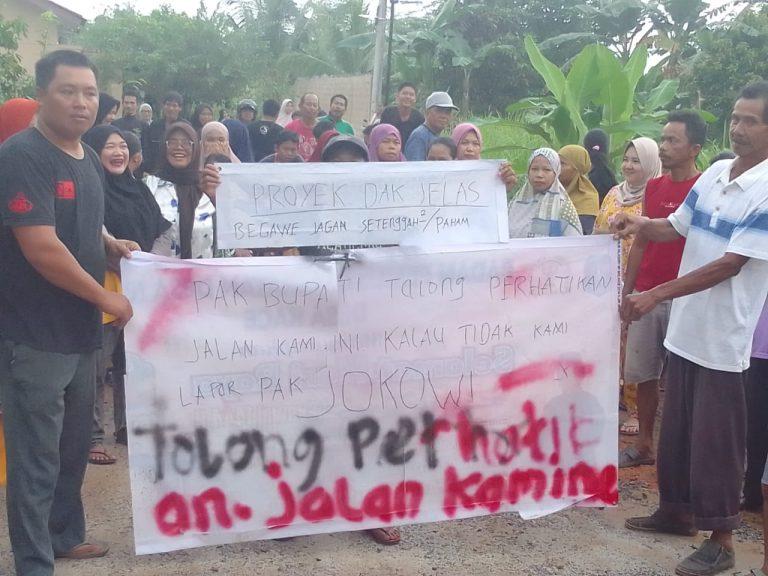 PROYEK DAK JELAS
BEGAWE JAGAN SETENGGAH²/PAHAM
PAK BUPATI TALONG PERHATIKAN
JALAN KAMI.INI KALAU TIDAK KAMI
LAPOR PAK JOKOWI
Tolong Perhatik
an. jalan kamine